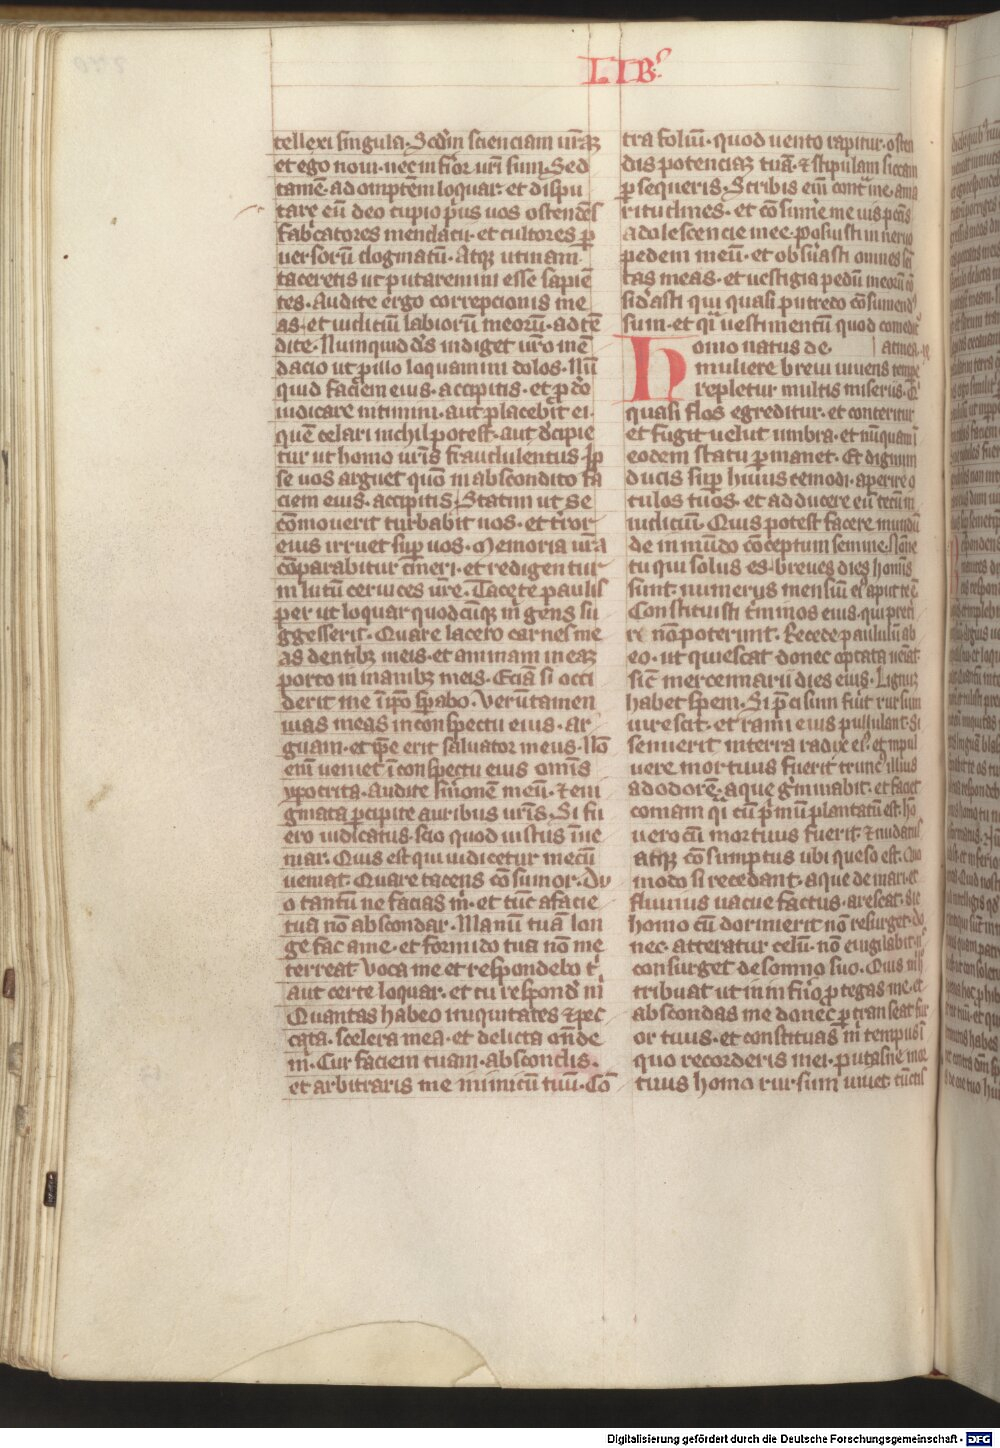 LIBͬ
tellexi singula. Scd̄m scienciam vr̄aꝫ
et ego novi. nec inferior vr̄i sum. Sed
tamē. ad omptēm loquar. et dispu
tare cū deo cupio pͥus vos ostendēs
fabͥcatores mendacii. et cultores ꝑ
versorū dogmatū. Atqꝫ utinam
taceretis ut putaremini esse sapiē
tes. Audite ergo correpcionis me
as. et iudiciū labiorū meorū. adtē
dite. Numquid dͣs indiget vr̄o mē
dacio ut ꝓ illo loquamini dolos. Nū
quid faciem eius. accipitis. et ꝓ dͦo
iudicare nitimini. aut placebit ei.
quē celari nichil potest. aut dͨipie
tur ut homo vr̄is fraudulentus. Ip̄
se vos arguet quō in abscondito fa
ciem eius. accipitis. Statim ut se
cōmoverit turbabit vos. et tͬror
eius irruet suꝑ vos. Memoria vr̄a
cōparabitur cīneri. et redigentur
in lutū cervices vr̄e. Tacete paulis
per ut loquar quodcūqꝫ m̄ gens su
ggesserit. Quare lacero carnes me
as dentibꝫ meis. et animam meaꝫ
porto in manibꝫ meis. Eciā si occi
derit me ī ip̄o sꝑabo. Verūtamen
vias meas in conspectu eius. ar
guam. et ip̄e erit salvator meus. Nō
em̄ veniet ī conspectu eius omīs
ypocrita. Audite sͬmonē meū. et eni
gmata ꝑcipite auribus vr̄is. Si fu
ero iudicatus. scio quod iustus īve
niar. Quis est qui iudicetur mecū
veniat. Quare tacens cōsumor. Du
o tantū ne facias m̄. et tūc a facie
tua nō abscondar. Manū tuā lon
ge fac a me. et formido tua nō me
terreat. Voca me et respondebo tͥ
aut certe loquar. et tu respondͤ m̄
Quantas habeo iniquitates et pec
cata. scelera mea. et delicta ostēde
m̄. Cur faciem tuam. abscondis.
et arbitraris me inimicū tuū. Cō
tra foliū. quod vento rapitur. osten
dis potenciaꝫ tuā. et stipulam siccam
ꝑsequeris. Scribis em̄ contͣ me. ama
ritudines. et cōsumͤe me vis pctīs
adolescencie mee. Posuisti in nervo
pedem meū. et obsͬvasti omnes se
tas meas. et vestigia pedū meorū cō
sidͬasti qui quasi putredo cōsumendͥ
sum. et qͥ vestimentū quod comeditͬ
Homo natus de | a tinea.
muliere brevi vivens tempe
repletur multis miseriis. Qͥ
quasi flos egreditur. et conteritur
et fugit velut umbra. et nūquam ī
eodem statu ꝑmanet. Et dignum
ducis suꝑ huiuscemodi. aperire o
culos tuos. et adducere eū tecū in
iudiciū. Quis potest facere mundū
de inmūdo cōceptum semine. Nōne
tu qui solus es. breves dies hominis
sunt. numerus mensiū eͥ aput te ē
Constituisti tͬminos eius. qui preti
ri nō poterunt. Recede paululū ab
eo. ut quiescat donec optata veniat.
sic̄ mercennarii dies eius. Lignuꝫ
habet spem. Si p̄cisum fuͥt rursum
virescit. et rami eius pullulant. Si
senuerit in terra radix eͥ. et in pul
vere mortuus fuerit truncͥ illius
ad odorē. aque gͬminabit. et faciet
comam qͥ cū pͥmū plantatū est. hō
vero cū mortuus fuerit. et nudatus
atqꝫ cōsumptus ubi queso est. Quo
modo si recedant. aque de mari. et
fluvius vacue factus. arescat. sic
homo cū dormierit nō resurget. do
nec. atteratur celū. nō evigilabit. nͨ
consurget de somno suo. Quis mͥ
tribuat ut in inferͦ protegas me. et
abscondas me donec ꝑtranseat fur
or tuus. et constituas m̄ tempus ī
quo recorderis mei. putasne mor
tuus homo rursum vivet. cūctis
Digitalisierung gefördert durch die Deutsche Forschungsgemeinschaft - DFG